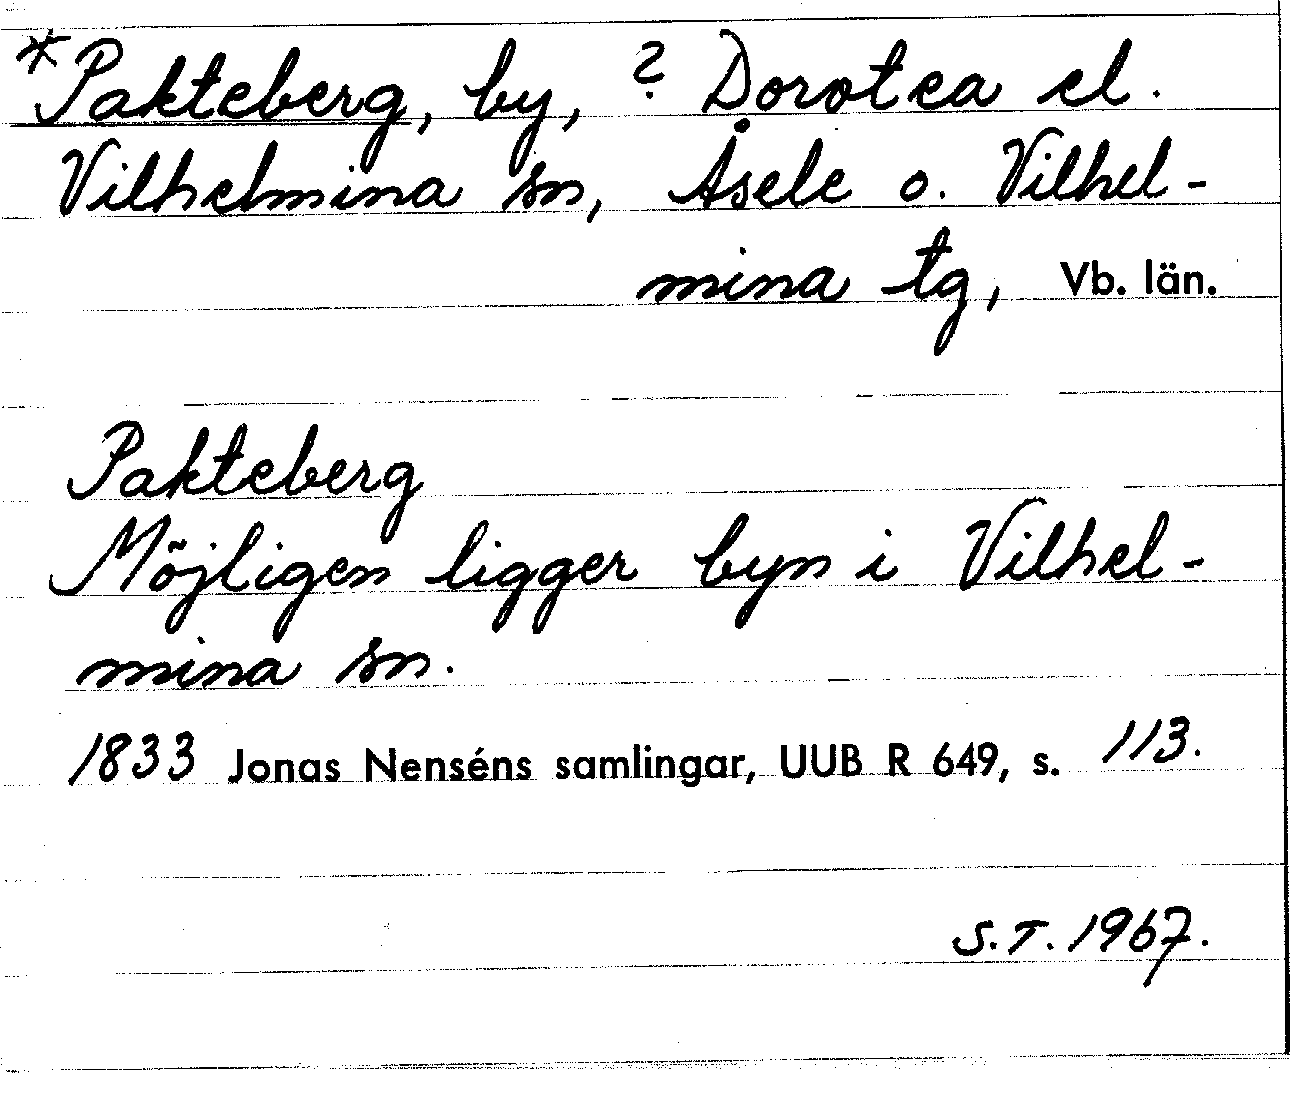 *Pakteberg, by, ? Dorotea el.
Vilhelmina sn, Åsele o. Vilhel-
mina tg, Vb. län.
Pakteberg
Möjligen ligger byn i Vilhel-
mina sn.
1833 Jonas Nenséns samlingar, UUB R 649, s. 113.
S.T. 1967.